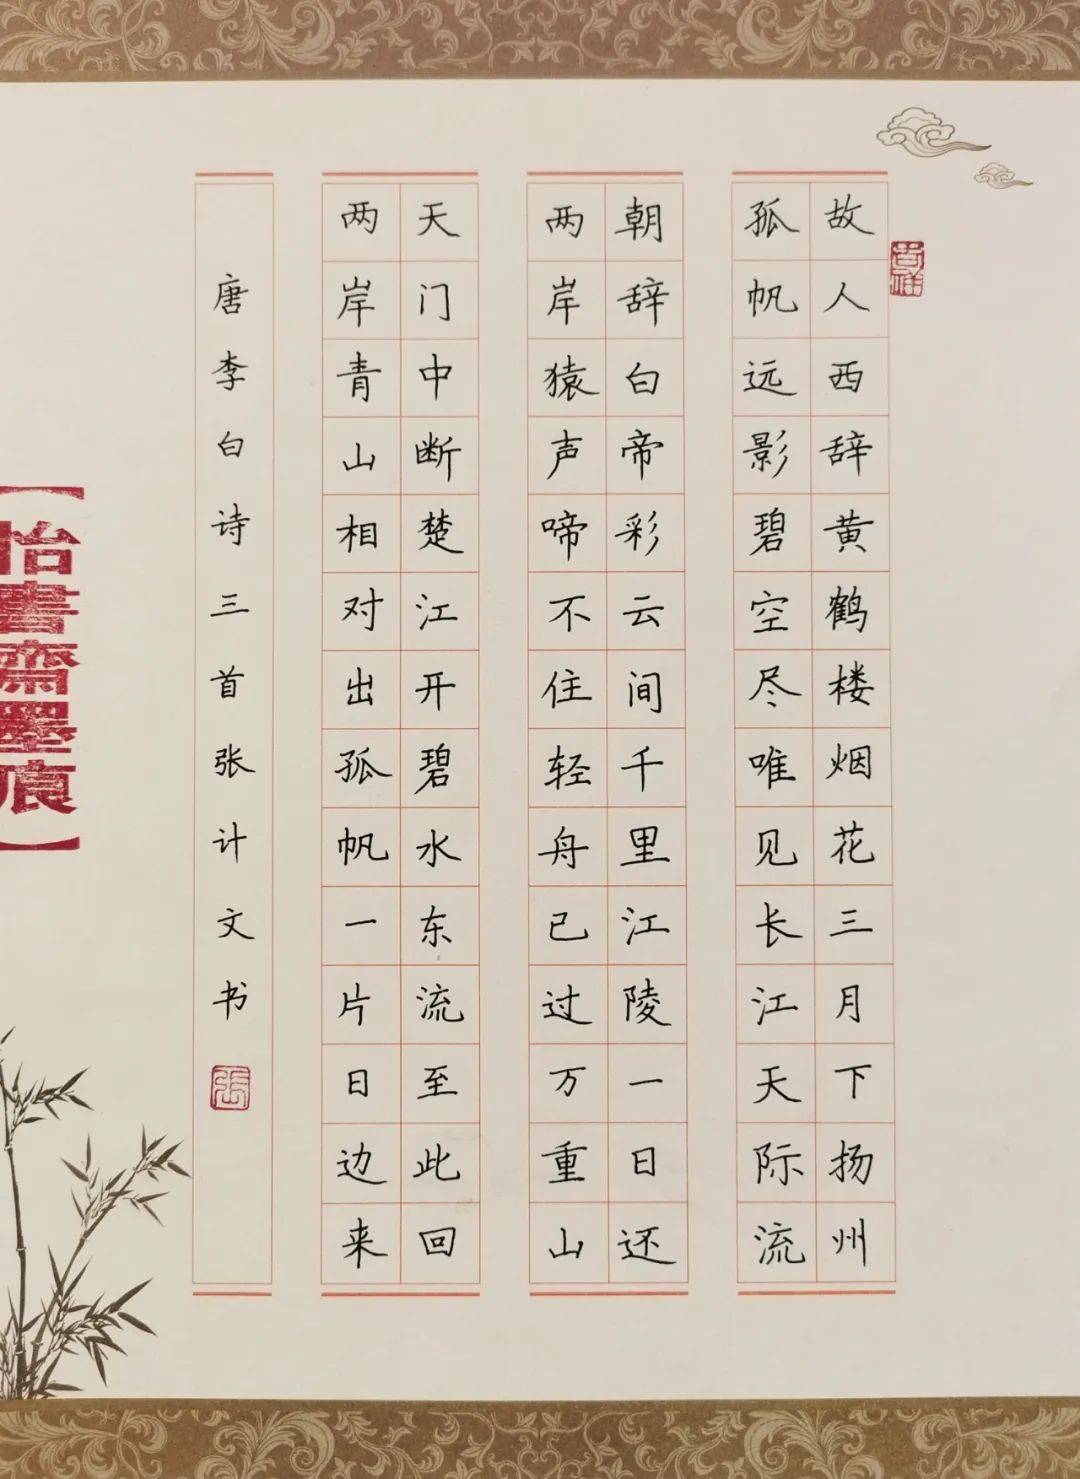 故人西辞黄鹤楼烟花三月下扬州
孤帆远影碧空尽唯见长江天际流
朝辞白帝彩云间千里江陵一日还
两岸猿声啼不住轻舟已过万重山
天门中断楚江开碧水东流至此回
两岸青山相对出孤帆一片日边来
唐李白诗三首张计文书
张
【怡書齋墨痕】